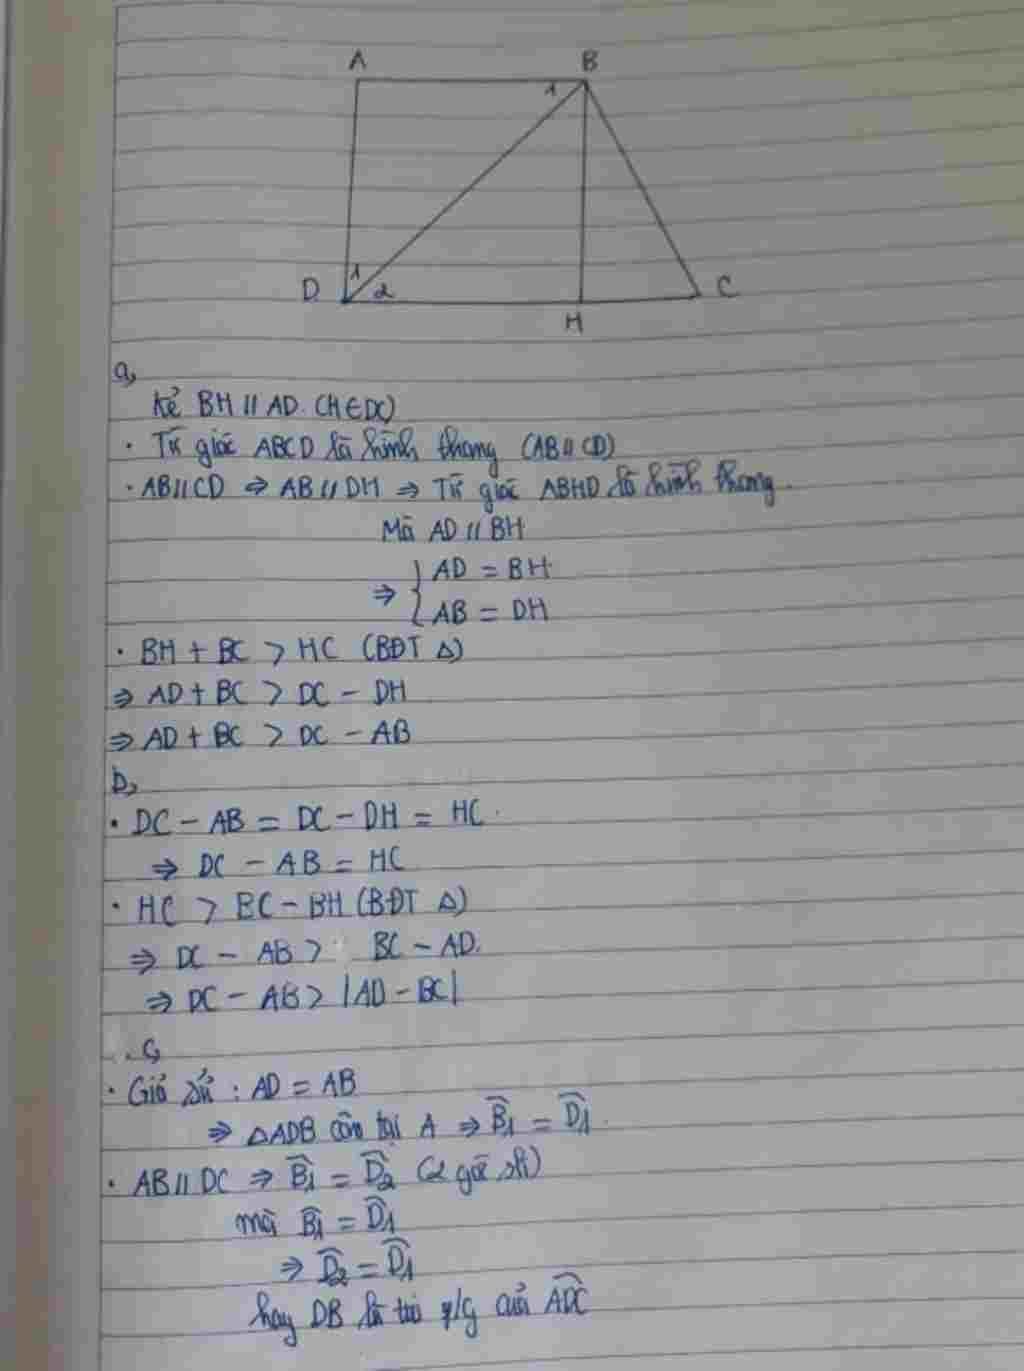 A B
1
1
D 2 C
H
a,
Kẻ BH // AD. (H ∈ DC)
· Tứ giác ABCD là hình thang (AB // CD)
· AB // CD ⇒ AB // DH ⇒ Tứ giác ABHD là hình thang.
Mà AD // BH
⇒ { AD = BH
AB = DH
· BH + BC > HC (BĐT Δ)
⇒ AD + BC > DC - DH
⇒ AD + BC > DC - AB
b,
· DC - AB = DC - DH = HC.
⇒ DC - AB = HC
· HC > BC - BH (BĐT Δ)
⇒ DC - AB > BC - AD.
⇒ DC - AB > |AD - BC|
. c,
· Giả sử : AD = AB
⇒ ΔADB cân tại A ⇒ B̂₁ = D̂₁.
· AB // DC ⇒ B̂₁ = D̂₂ (2 góc slt)
mà B̂₁ = D̂₁
⇒ D̂₂ = D̂₁
hay DB là tia p/g của ADC